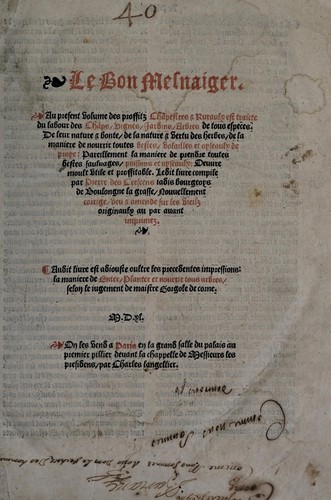 40
Le Bon Mesnaiger.
Au present Volume des proffitz Chāpestres & Ruraulx est traicte
du labour des Chāps, Vignes, Jardins, Arbres de tous especes.
De leur nature & bonte, de la nature & Vertu des herbes, de la
maniere de nourrir toutes bestes, Volailles et oyseaulx de
proye: Pareillement la maniere de prendre toutes
bestes sauluages, poissons et oyseaulx: Oeuure
moult Vtile et proffitable. Ledit liure compile
par Pierre des Crescens iadis bourgeoys
de Boulongne la grasse, Nouuellement
corrige, veu & amende sur les Vielz
originaulx au par auant
imprimez.
Audit liure est adiouste oultre les precedentes impressions:
la maniere de Enter, Planter et nourrir tous arbres,
selon le iugement de maistre Gorgole de corne.
M.D.xl.
On les vend a Paris en la grand salle du palais au
premier pillier deuant la chappelle de Messieurs les
presidens, par Charles langellier.